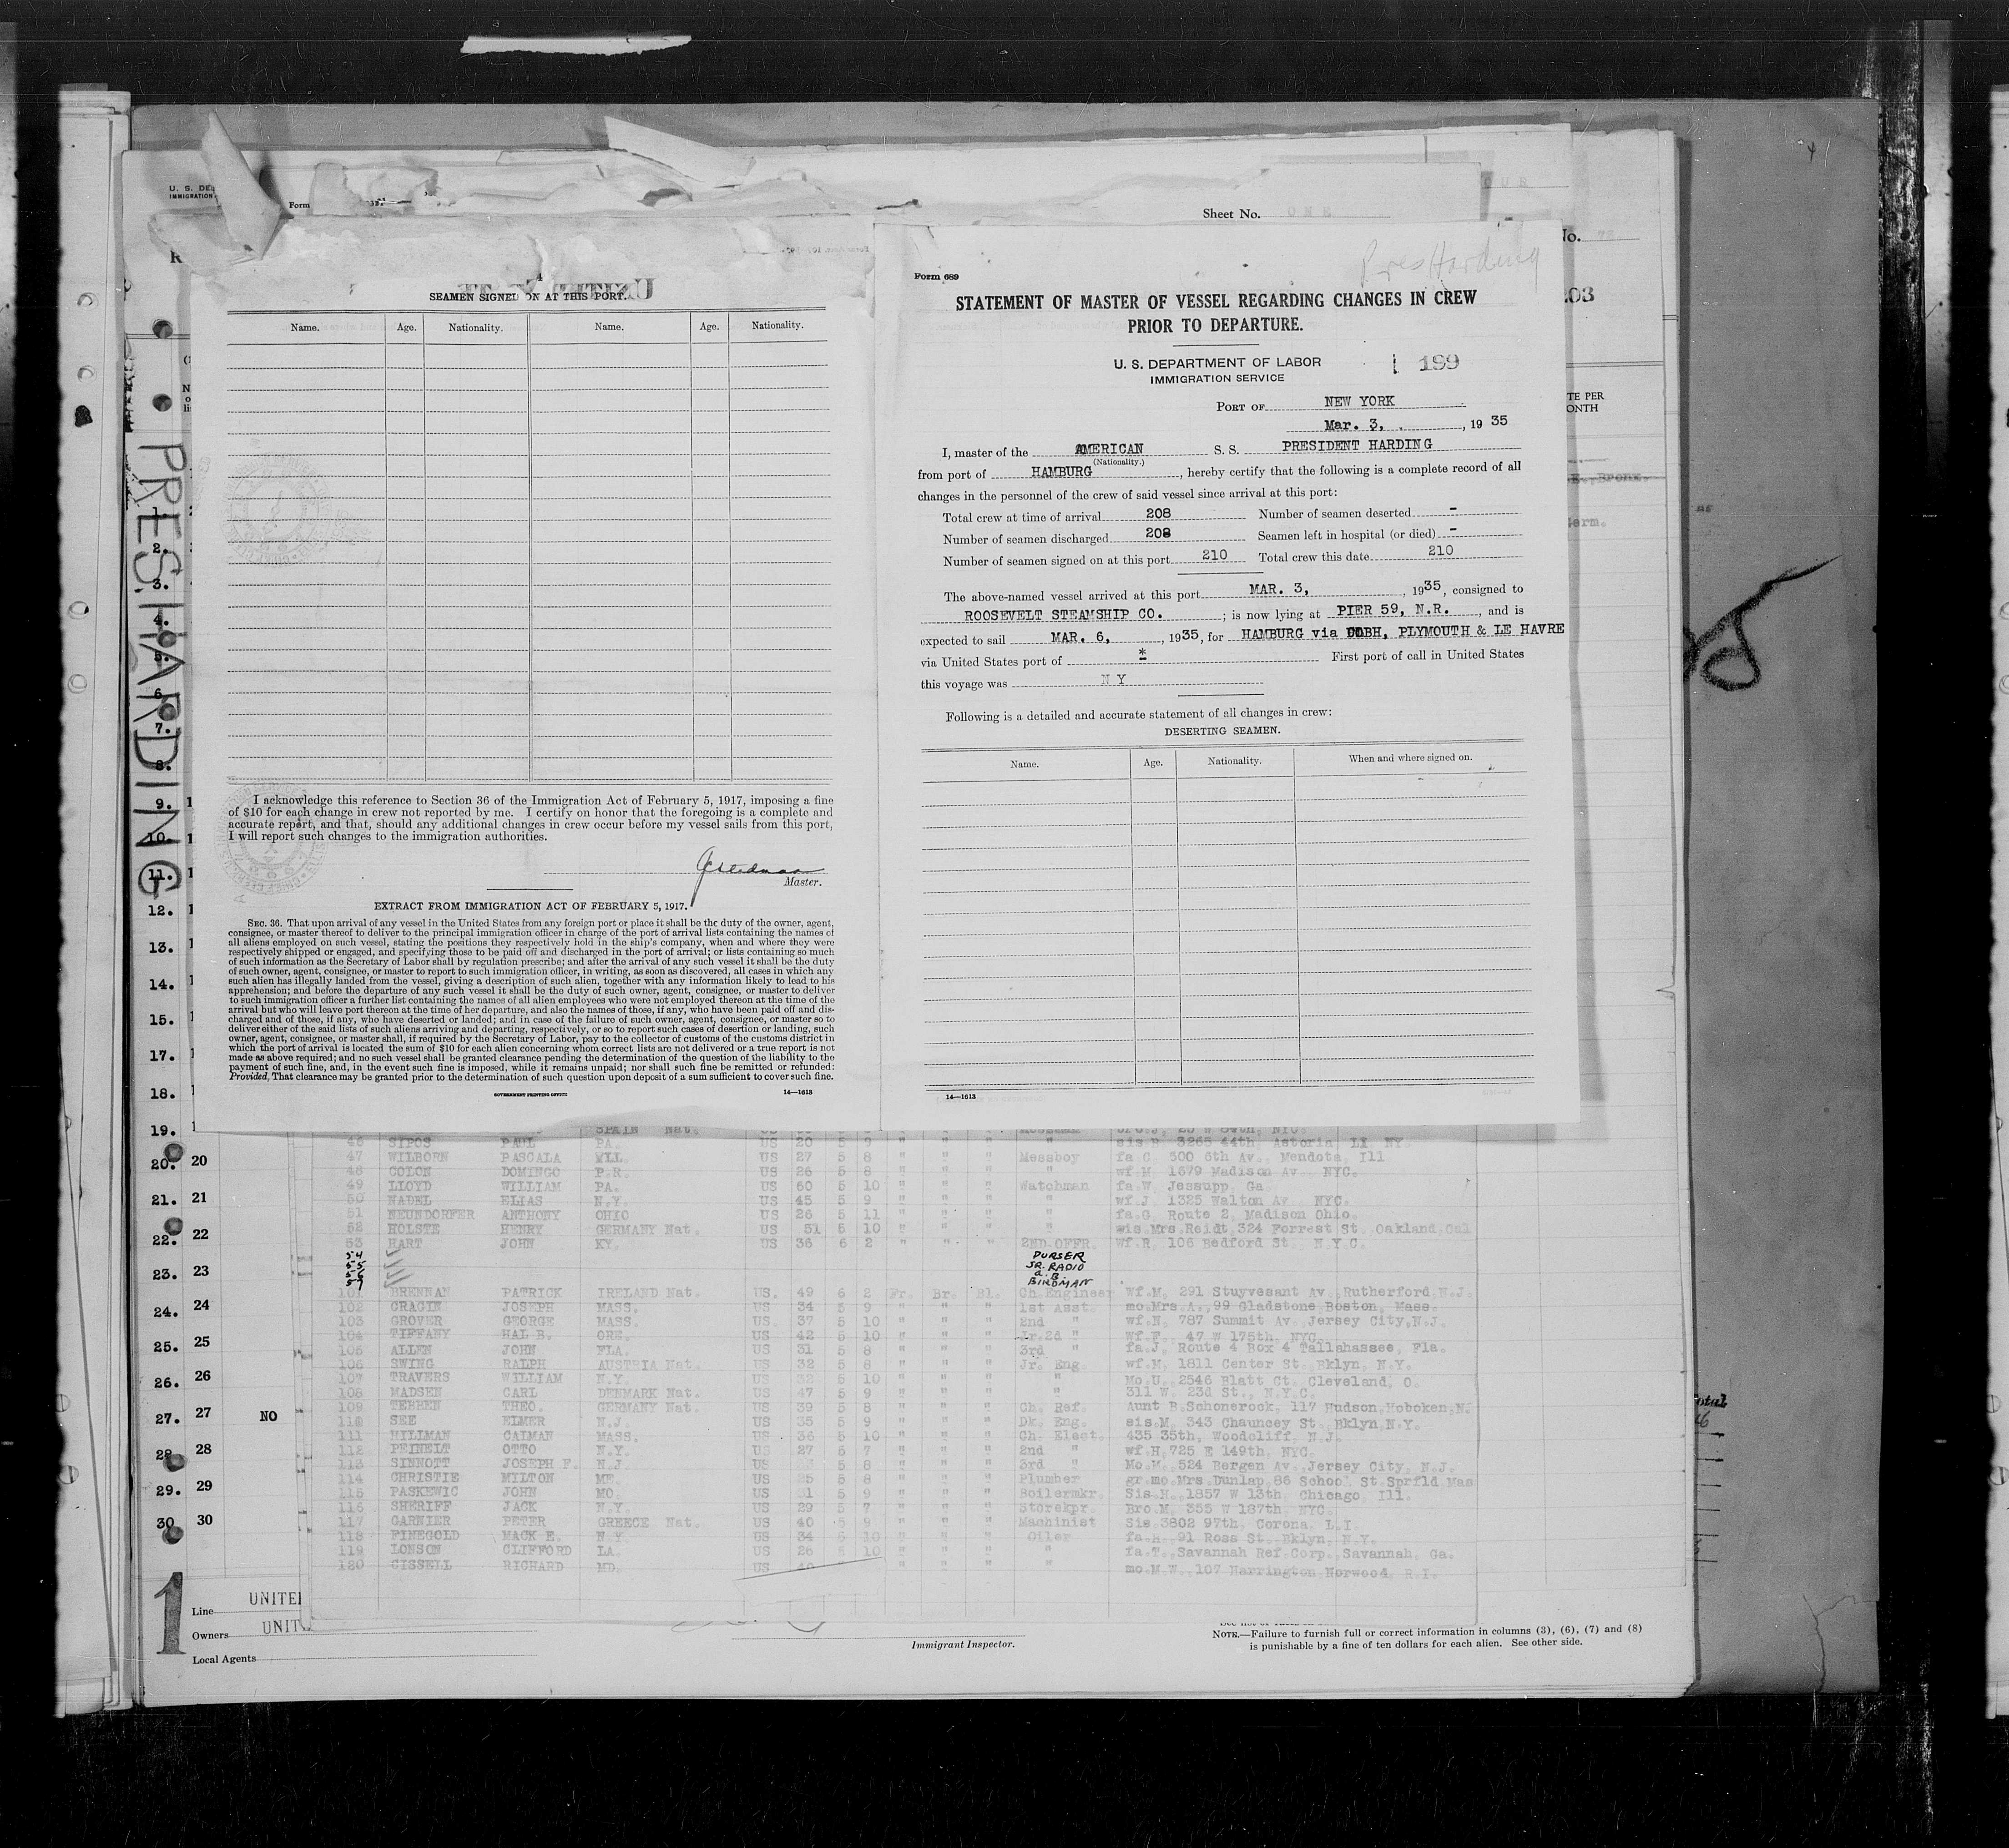 U. S. DE
IMMIGRATION
Form
Sheet No. ONE
No.
PRES. HARDING
4
SEAMEN SIGNED ON AT THIS PORT.
Name. Age. Nationality. Name. Age. Nationality.
I acknowledge this reference to Section 36 of the Immigration Act of February 5, 1917, imposing a fine
of $10 for each change in crew not reported by me. I certify on honor that the foregoing is a complete and
accurate report, and that, should any additional changes in crew occur before my vessel sails from this port,
I will report such changes to the immigration authorities.
Master.
EXTRACT FROM IMMIGRATION ACT OF FEBRUARY 5, 1917.
SEC. 36. That upon arrival of any vessel in the United States from any foreign port or place it shall be the duty of the owner, agent,
consignee, or master thereof to deliver to the principal immigration officer in charge of the port of arrival lists containing the names of
all aliens employed on such vessel, stating the positions they respectively hold in the ship's company, when and where they were
respectively shipped or engaged, and specifying those to be paid off and discharged in the port of arrival; or lists containing so much
of such information as the Secretary of Labor shall by regulation prescribe; and after the arrival of any such vessel it shall be the duty
of such owner, agent, consignee, or master to report to such immigration officer, in writing, as soon as discovered, all cases in which any
such alien has illegally landed from the vessel, giving a description of such alien, together with any information likely to lead to his
apprehension; and before the departure of any such vessel it shall be the duty of such owner, agent, consignee, or master to deliver
to such immigration officer a further list containing the names of all alien employees who were not employed thereon at the time of the
arrival but who will leave port thereon at the time of her departure, and also the names of those, if any, who have been paid off and dis-
charged and of those, if any, who have deserted or landed; and in case of the failure of such owner, agent, consignee, or master so to
deliver either of the said lists of such aliens arriving and departing, respectively, or so to report such cases of desertion or landing, such
owner, agent, consignee, or master shall, if required by the Secretary of Labor, pay to the collector of customs of the customs district in
which the port of arrival is located the sum of $10 for each alien concerning whom correct lists are not delivered or a true report is not
made as above required; and no such vessel shall be granted clearance pending the determination of the question of the liability to the
payment of such fine, and, in the event such fine is imposed, while it remains unpaid; nor shall such fine be remitted or refunded:
Provided, That clearance may be granted prior to the determination of such question upon deposit of a sum sufficient to cover such fine.
GOVERNMENT PRINTING OFFICE 14—1613
Pres Harding
Form 689
STATEMENT OF MASTER OF VESSEL REGARDING CHANGES IN CREW
PRIOR TO DEPARTURE.
U. S. DEPARTMENT OF LABOR
IMMIGRATION SERVICE
199
PORT OF NEW YORK
Mar. 3, , 1935
I, master of the AMERICAN S. S. PRESIDENT HARDING
(Nationality.)
from port of HAMBURG, hereby certify that the following is a complete record of all
changes in the personnel of the crew of said vessel since arrival at this port:
Total crew at time of arrival 208 Number of seamen deserted -
Number of seamen discharged 208 Seamen left in hospital (or died) -
Number of seamen signed on at this port 210 Total crew this date 210
The above-named vessel arrived at this port MAR. 3, , 1935, consigned to
ROOSEVELT STEAMSHIP CO. ; is now lying at PIER 59, N.R. , and is
expected to sail MAR. 6, , 1935, for HAMBURG via COBH, PLYMOUTH & LE HAVRE
via United States port of * First port of call in United States
this voyage was N Y
Following is a detailed and accurate statement of all changes in crew:
DESERTING SEAMEN.
Name. Age. Nationality. When and where signed on.
14—1613
SPAIN Nat.
46 SIPOS PAUL PA. US 20 5 9 " " " " sis B 3265 44th, Astoria LI NY.
47 WILBORN PASCALA ILL. US 27 5 8 " " " Messboy fa C 500 6th Av. Mendota, Ill
48 COLON DOMINGO P.R. US 26 5 8 " " " " wf M. 1679 Madison Av. NYC.
49 LLOYD WILLIAM PA. US 60 5 10 " " " Watchman fa W. Jessupp, Ga
50 NADEL ELIAS N.Y. US 45 5 9 " " " " wf.J. 1325 Walton Av NYC.
51 NEUNDORFER ANTHONY OHIO US 26 5 11 " " " " fa.G. Route 2, Madison Ohio.
52 HOLSTE HENRY GERMANY Nat. US 51 5 10 " " " " sis Mrs Reidt 324 Forrest St. Oakland Cal
53 HART JOHN KY. US 36 6 2 " " " 2ND OFFR. wf.R. 106 Bedford St. N.Y.C.
54 PURSER
55 JR. RADIO
56 a.B.
57 BIRDMAN
101 BRENNAN PATRICK IRELAND Nat. US. 49 6 2 Fr. Br. Bl. Ch Engineer wf.M. 291 Stuyvesant Av. Rutherford N.J.
102 CRAGIN JOSEPH MASS. US 34 5 9 " " " 1st Asst. mo.Mrs A., 99 Gladstone Boston, Mass.
103 GROVER GEORGE MASS. US. 37 5 10 " " " 2nd " wf.N. 787 Summit Av. Jersey City,N.J.
104 TIFFANY HAL B. ORE. US 42 5 10 " " " Jr.2d " wf.F. 47 W 175th. NYC.
105 ALLEN JOHN FLA. US 31 5 8 " " " 3rd " fa.J. Route 4 Box 4 Tallahassee, Fla.
106 SWING RALPH AUSTRIA Nat. US 32 5 8 " " " Jr. Eng. wf.M. 1811 Center St. Bklyn, N.Y.
107 TRAVERS WILLIAM N.Y. US 32 5 10 " " " " Mo.U. 2546 Blatt Ct. Cleveland, O.
108 MADSEN CARL DENMARK Nat. US 47 5 9 " " " " 311 W. 23d St., N.Y.C.
109 TEBBEN THEO. GERMANY Nat. US 39 5 8 " " " Ch. Ref. Aunt B.Schonerock, 117 Hudson,Hoboken,N.
110 SEE ELMER N.J. US 35 5 9 " " " Dk. Eng. sis.M. 343 Chauncey St. Bklyn N.Y.
111 HILLMAN CALMAN MASS. US 36 5 10 " " " Ch. Elect. 435 35th, Woodcliff, N.J.
112 PEINELT OTTO N.Y. US 27 5 7 " " " 2nd " wf H,725 E 149th. NYC.
113 SINNOTT JOSEPH F. N.J. US 5 8 " " " 3rd " Mo.M. 524 Bergen Av. Jersey City, N.J.
114 CHRISTIE MILTON ME. US 25 5 8 " " " Plumber gr.mo.Mrs.Dunlap,86 School St.Sprfld Mas
115 PASKEWIC JOHN MO. US 31 5 9 " " " Boilermkr. Sis.H. 1857 W 13th. Chicago, Ill.
116 SHERIFF JACK N.Y. US 29 5 7 " " " Storekpr. Bro.M. 355 W 187th. NYC.
117 GARNIER PETER GREECE Nat. US 40 5 9 " " " Machinist Sis.3802 97th. Corona, L.I.
118 FINEGOLD MACK E. N.Y. US 34 5 10 " " " Oiler fa.H. 91 Ross St. Bklyn, N.Y.
119 LONSON CLIFFORD LA. US 26 5 10 " " " " fa.T. Savannah Ref Corp. Savannah, Ga.
120 CISSELL RICHARD MD. US 40 " mo.M.W. 107 Harrington Norwood, R.I.
2.
3.
4.
5.
6.
7.
8.
9.
10.
11.
12.
13.
14.
15.
17.
18.
19.
20. 20
21. 21
22. 22
23. 23
24. 24
25. 25
26. 26
27. 27 NO
28. 28
29. 29
30 30
1
Line UNITE
Owners UNIT
Local Agents
Immigrant Inspector.
NOTE.—Failure to furnish full or correct information in columns (3), (6), (7) and (8)
is punishable by a fine of ten dollars for each alien. See other side.